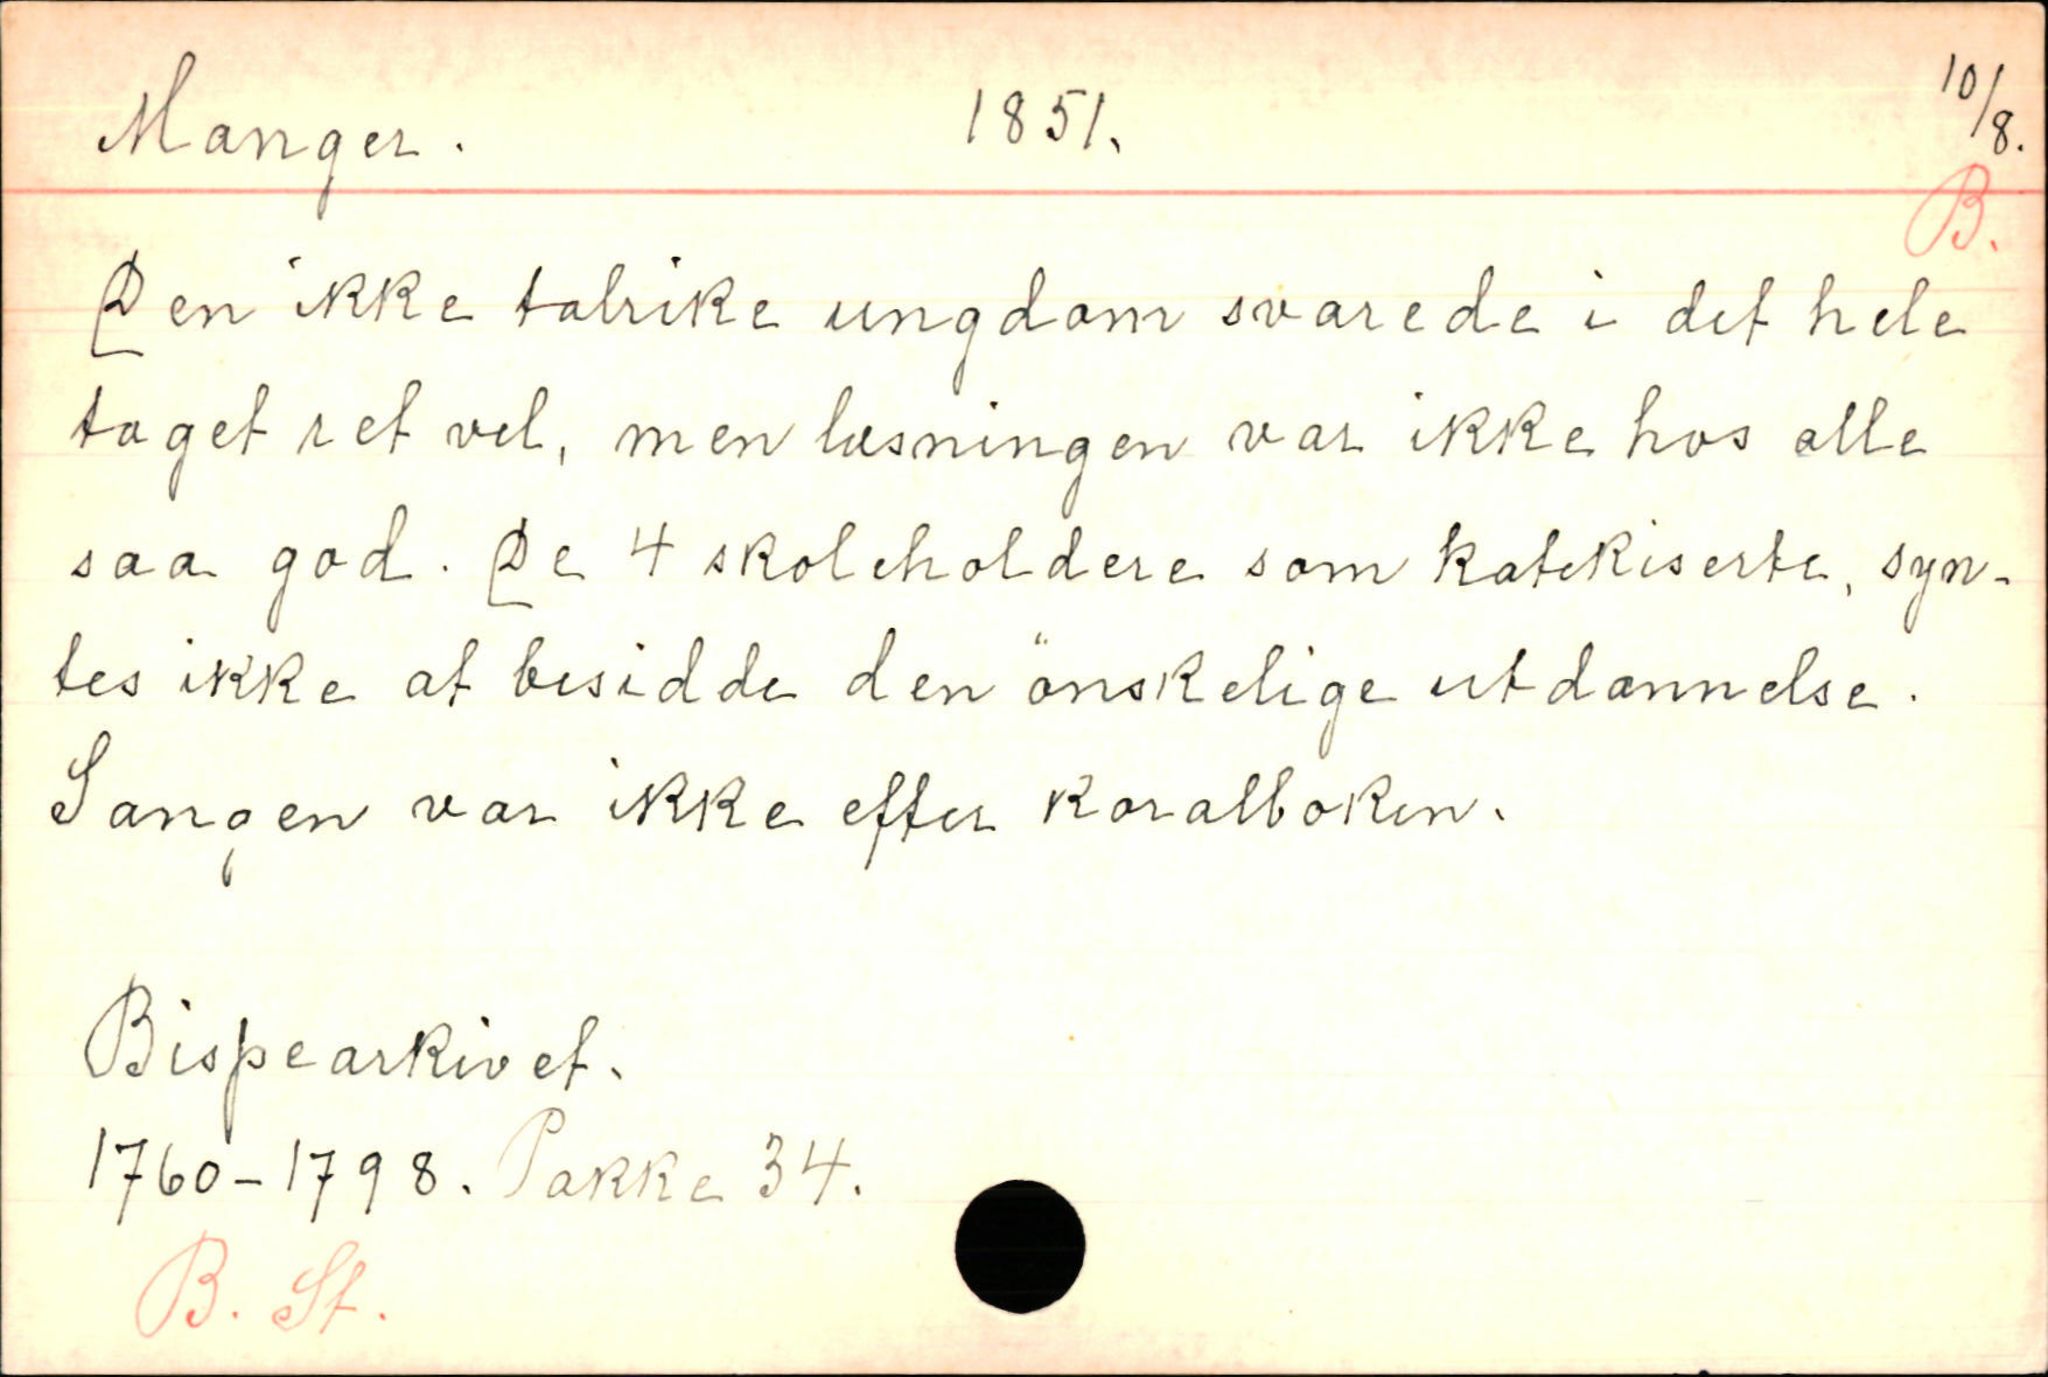 Manger. 1851. 10/8.
B.
Den ikke talrike ungdom svarede i det hele
taget ret vel, men læsningen var ikke hos alle
saa god. De 4 skoleholdere som katekiserte, syn-
tes ikke at besidde den önskelige utdannelse.
Sangen var ikke efter koralboken.
Bispearkivet.
1760-1798. Pakke 34.
B. St.